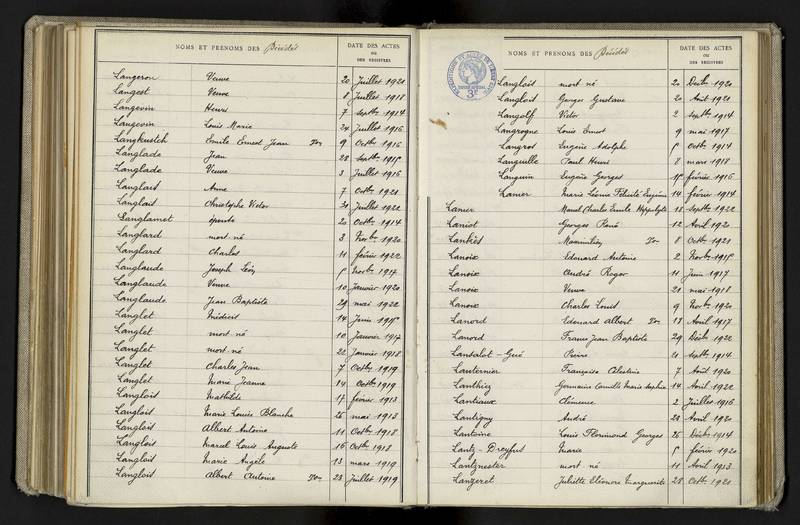 NOMS ET PRÉNOMS DES Décédés
DATE DES ACTES
OU
DES REGISTRES
Langeron Veuve 20 Juillet 1921
Langest Veuve 8 Juillet 1918
Langevin Henri 7 Septbre 1914
Langevin Louis Marie 24 Juillet 1916
Langkustch Emile Ernest Jean 9 Octbre 1916
Langlade Jean 28 Septbre 1915
Langlade Veuve 3 Juillet 1916
Langlais Anne 7 Octbre 1921
Langlais Christophe Victor 31 Juillet 1922
Langlamet épouse 20 Octbre 1914
Langlard mort né 3 Novbre 1920
Langlard Charles 11 février 1922
Langlaude Joseph Léon 5 Novbre 1917
Langlaude Veuve 10 Janvier 1920
Langlaude Jean Baptiste 29 mai 1922
Langlet 14 Juin 1915
Langlet mort né 10 Janvier 1917
Langlet mort né 22 Janvier 1918
Langlet Charles Jean 7 Octbre 1919
Langlet Marie Jeanne 14 Octbre 1919
Langlois Mathilde 17 février 1913
Langlois Marie Louise Blanche 26 mai 1913
Langlois Albert Antoine 11 Octbre 1918
Langlois Marcel Louis Auguste 16 Octbre 1918
Langlois Marie Angèle 13 mars 1919
Langlois Albert Antoine 23 Juillet 1919
NOMS ET PRÉNOMS DES Décédés
DATE DES ACTES
OU
DES REGISTRES
Langlois mort né 20 Décbre 1920
Langlois Georges Gustave 20 Août 1921
Langolf Victor 2 Septbre 1914
Langrogne Louis Ernest 9 mai 1917
Langros Eugène Adolphe 5 Octbre 1914
Languille Paul Henri 8 mars 1918
Languin Eugène Georges 15 février 1916
Lanier Marie Léonie Félicité Eugénie 14 février 1914
Lanier Marcel Charles Emile Hippolyte 18 Septbre 1922
Laniot Georges René 12 Avril 1920
Lankès Maximilien 8 Octbre 1921
Lanoix Edouard Antoine 2 Novbre 1915
Lanoix André Roger 11 Juin 1917
Lanoix Veuve 21 mai 1918
Lanoix Charles Louis 9 Novbre 1920
Lanord Edouard Albert 17 Avril 1917
Lanord Francs Jean Baptiste 29 Décbre 1922
Lansalot-Gué Pierre 21 Septbre 1914
Lanternier Françoise Célestine 7 Août 1920
Lanthiez Germaine Camille Marie Sophie 14 Avril 1922
Lantiaux Clémence 2 Juillet 1916
Lantigny André 28 Avril 1920
Lantoine Louis Florimond Georges 26 Décbre 1914
Lantz-Dreyfus Marie 5 février 1920
Lantznester mort né 11 Avril 1913
Lanzeret Juliette Eléonore Marguerite 28 Octbre 1921